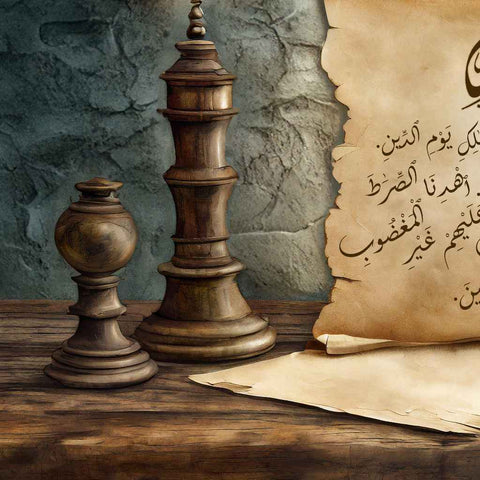 لِكِ يَوْمِ ٱلدِّينِ.
. ٱهْدِنَا ٱلصِّرَٰطَ
عَلَيْهِمْ غَيْرِ ٱلْمَغْضُوبِ
ينَ.